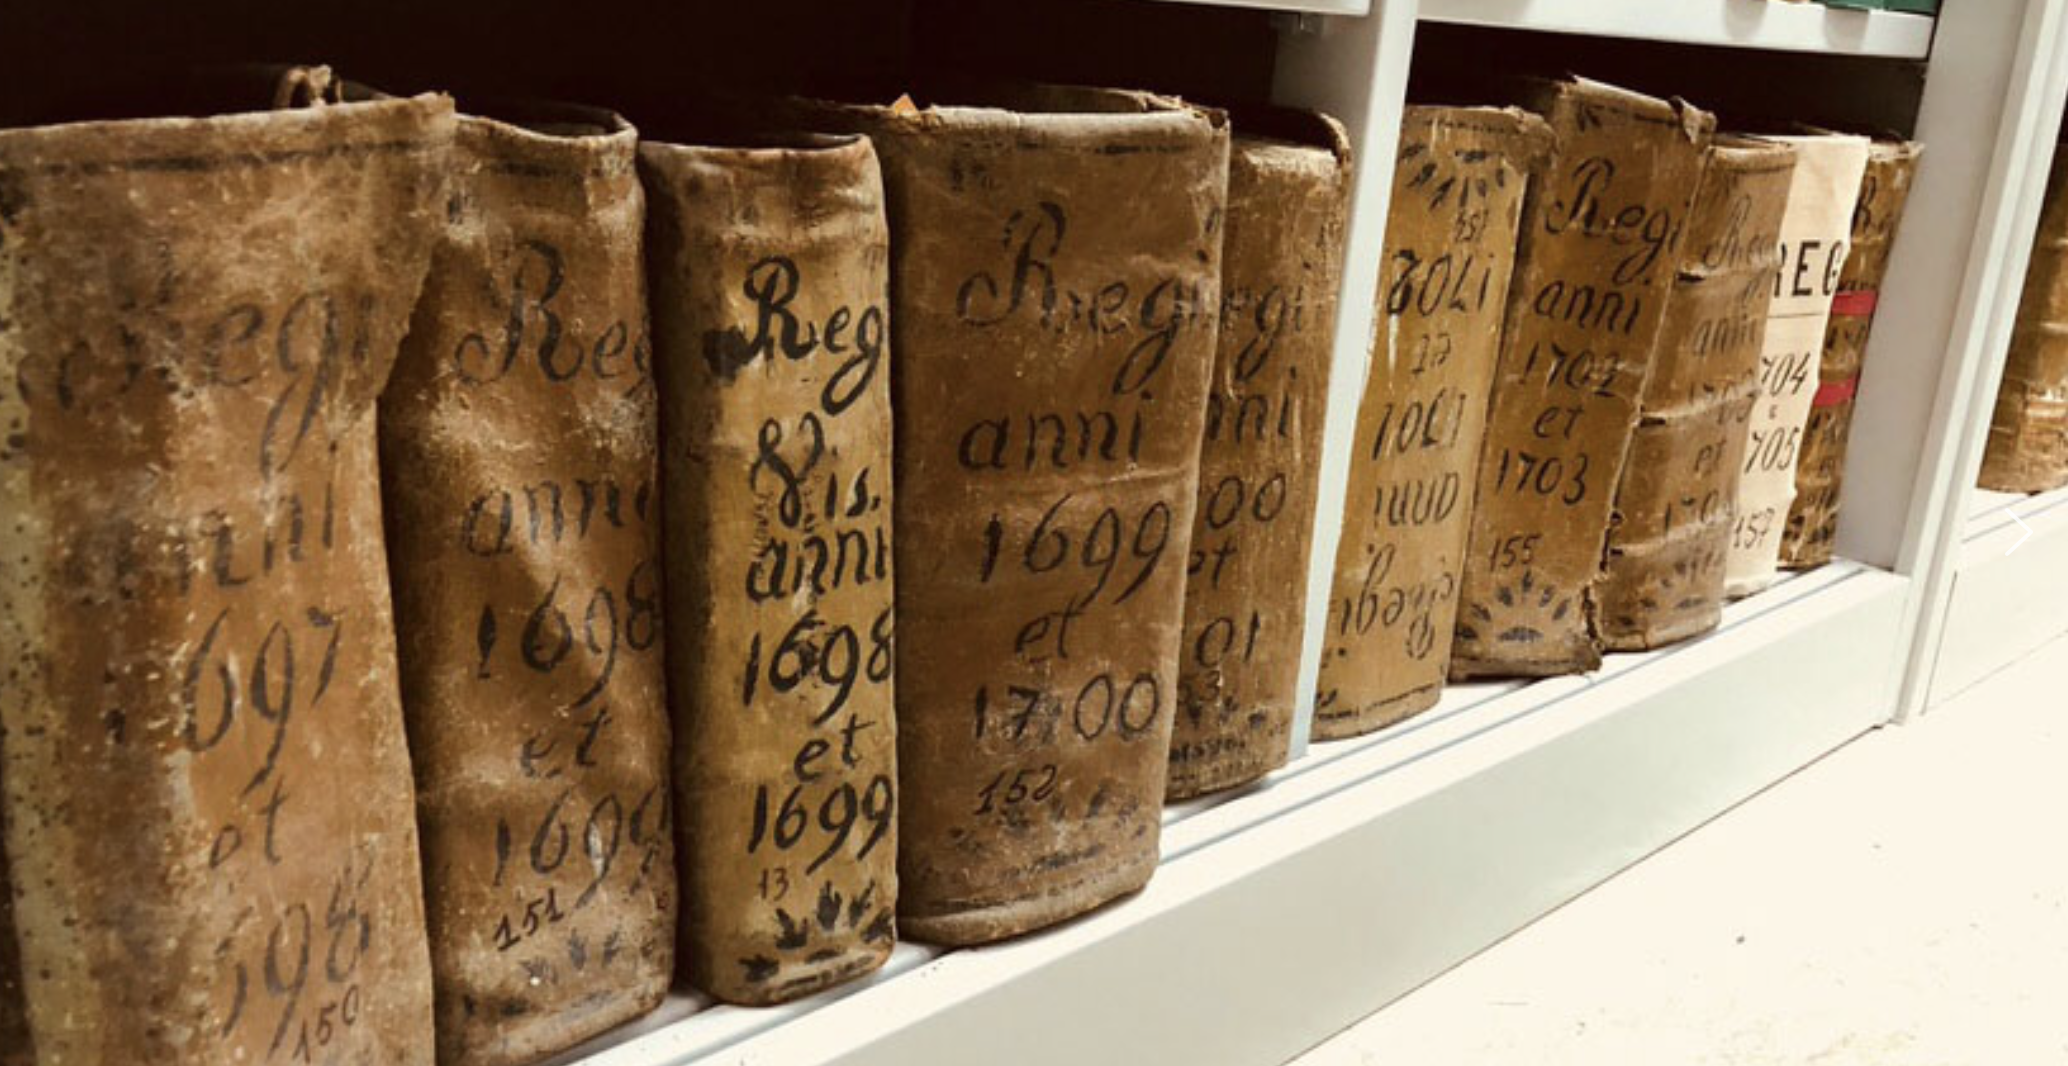 egi
nni
697
et
698
150
Reg
anni
1698
et
1699
151
Reg
&
Vis.
anni
1698
et
1699
13
Regi
anni
1699
et
1700
152
egi
nni
00
et
01
Regi
anni
1701
et
1702
Regi
anni
1702
et
1703
155
Reg
anni
1703
et
REG
704
e
705
157